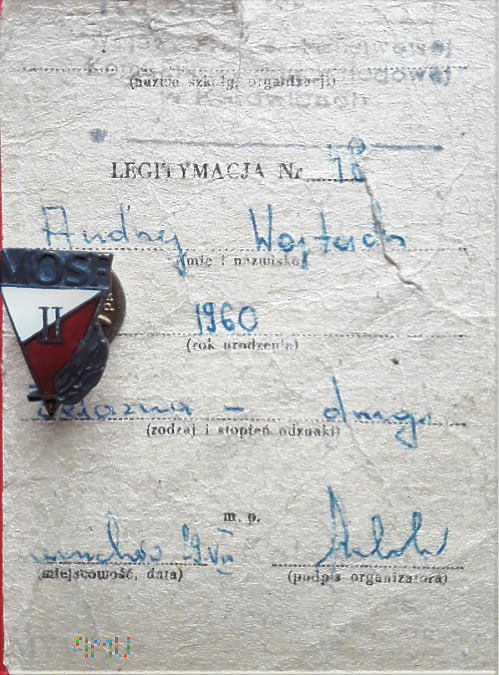 (nazwa szkoły, organizacji)
LEGITYMACJA Nr 18
Andrzej Wojtach
(imię i nazwisko)
MOSF
II
1960
(rok urodzenia)
Żelazna - druga
(zodzaj i stopień odznaki)
m. p.
19.VII
(miejscowość, data) (podpis organizatora)